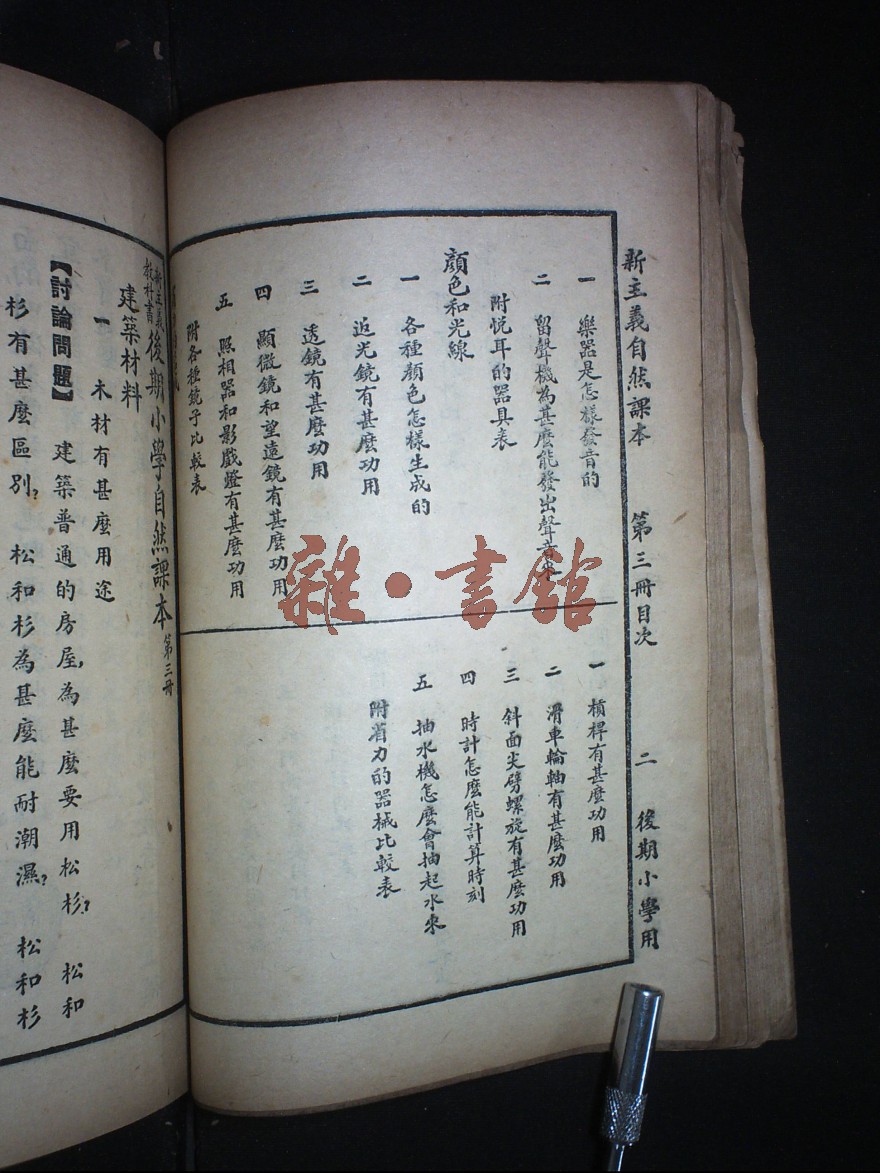 新主義自然課本 第三冊目次 二 後期小學用
一 樂器是怎樣發音的
二 留聲機為甚麼能發出聲音來
附悅耳的器具表
顏色和光線
一 各種顏色怎樣生成的
二 返光鏡有甚麼功用
三 透鏡有甚麼功用
四 顯微鏡和望遠鏡有甚麼功用
五 照相器和影戲燈有甚麼功用
附各種鏡子比較表
一 槓桿有甚麼功用
二 滑車輪軸有甚麼功用
三 斜面尖劈螺旋有甚麼功用
四 時計怎麼能計算時刻
五 抽水機怎麼會抽起水來
附省力的器械比較表
新主義教科書 後期小學自然課本 第三冊
建築材料
一 木材有甚麼用途
【討論問題】 建築普通的房屋,為甚麼要用松杉? 松和
杉有甚麼區別? 松和杉為甚麼能耐潮濕? 松和杉
雜·書館